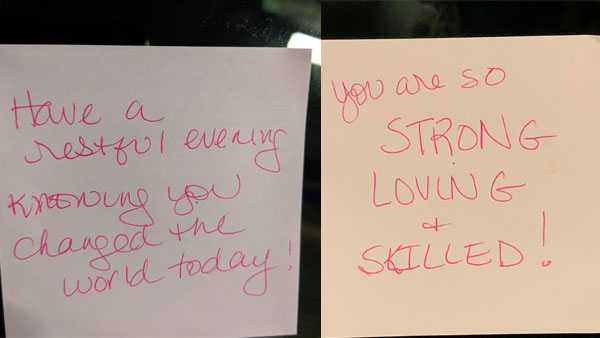 Have a
restful evening
knowing you
changed the
world today!
you are so
STRONG
LOVING
+
SKILLED!